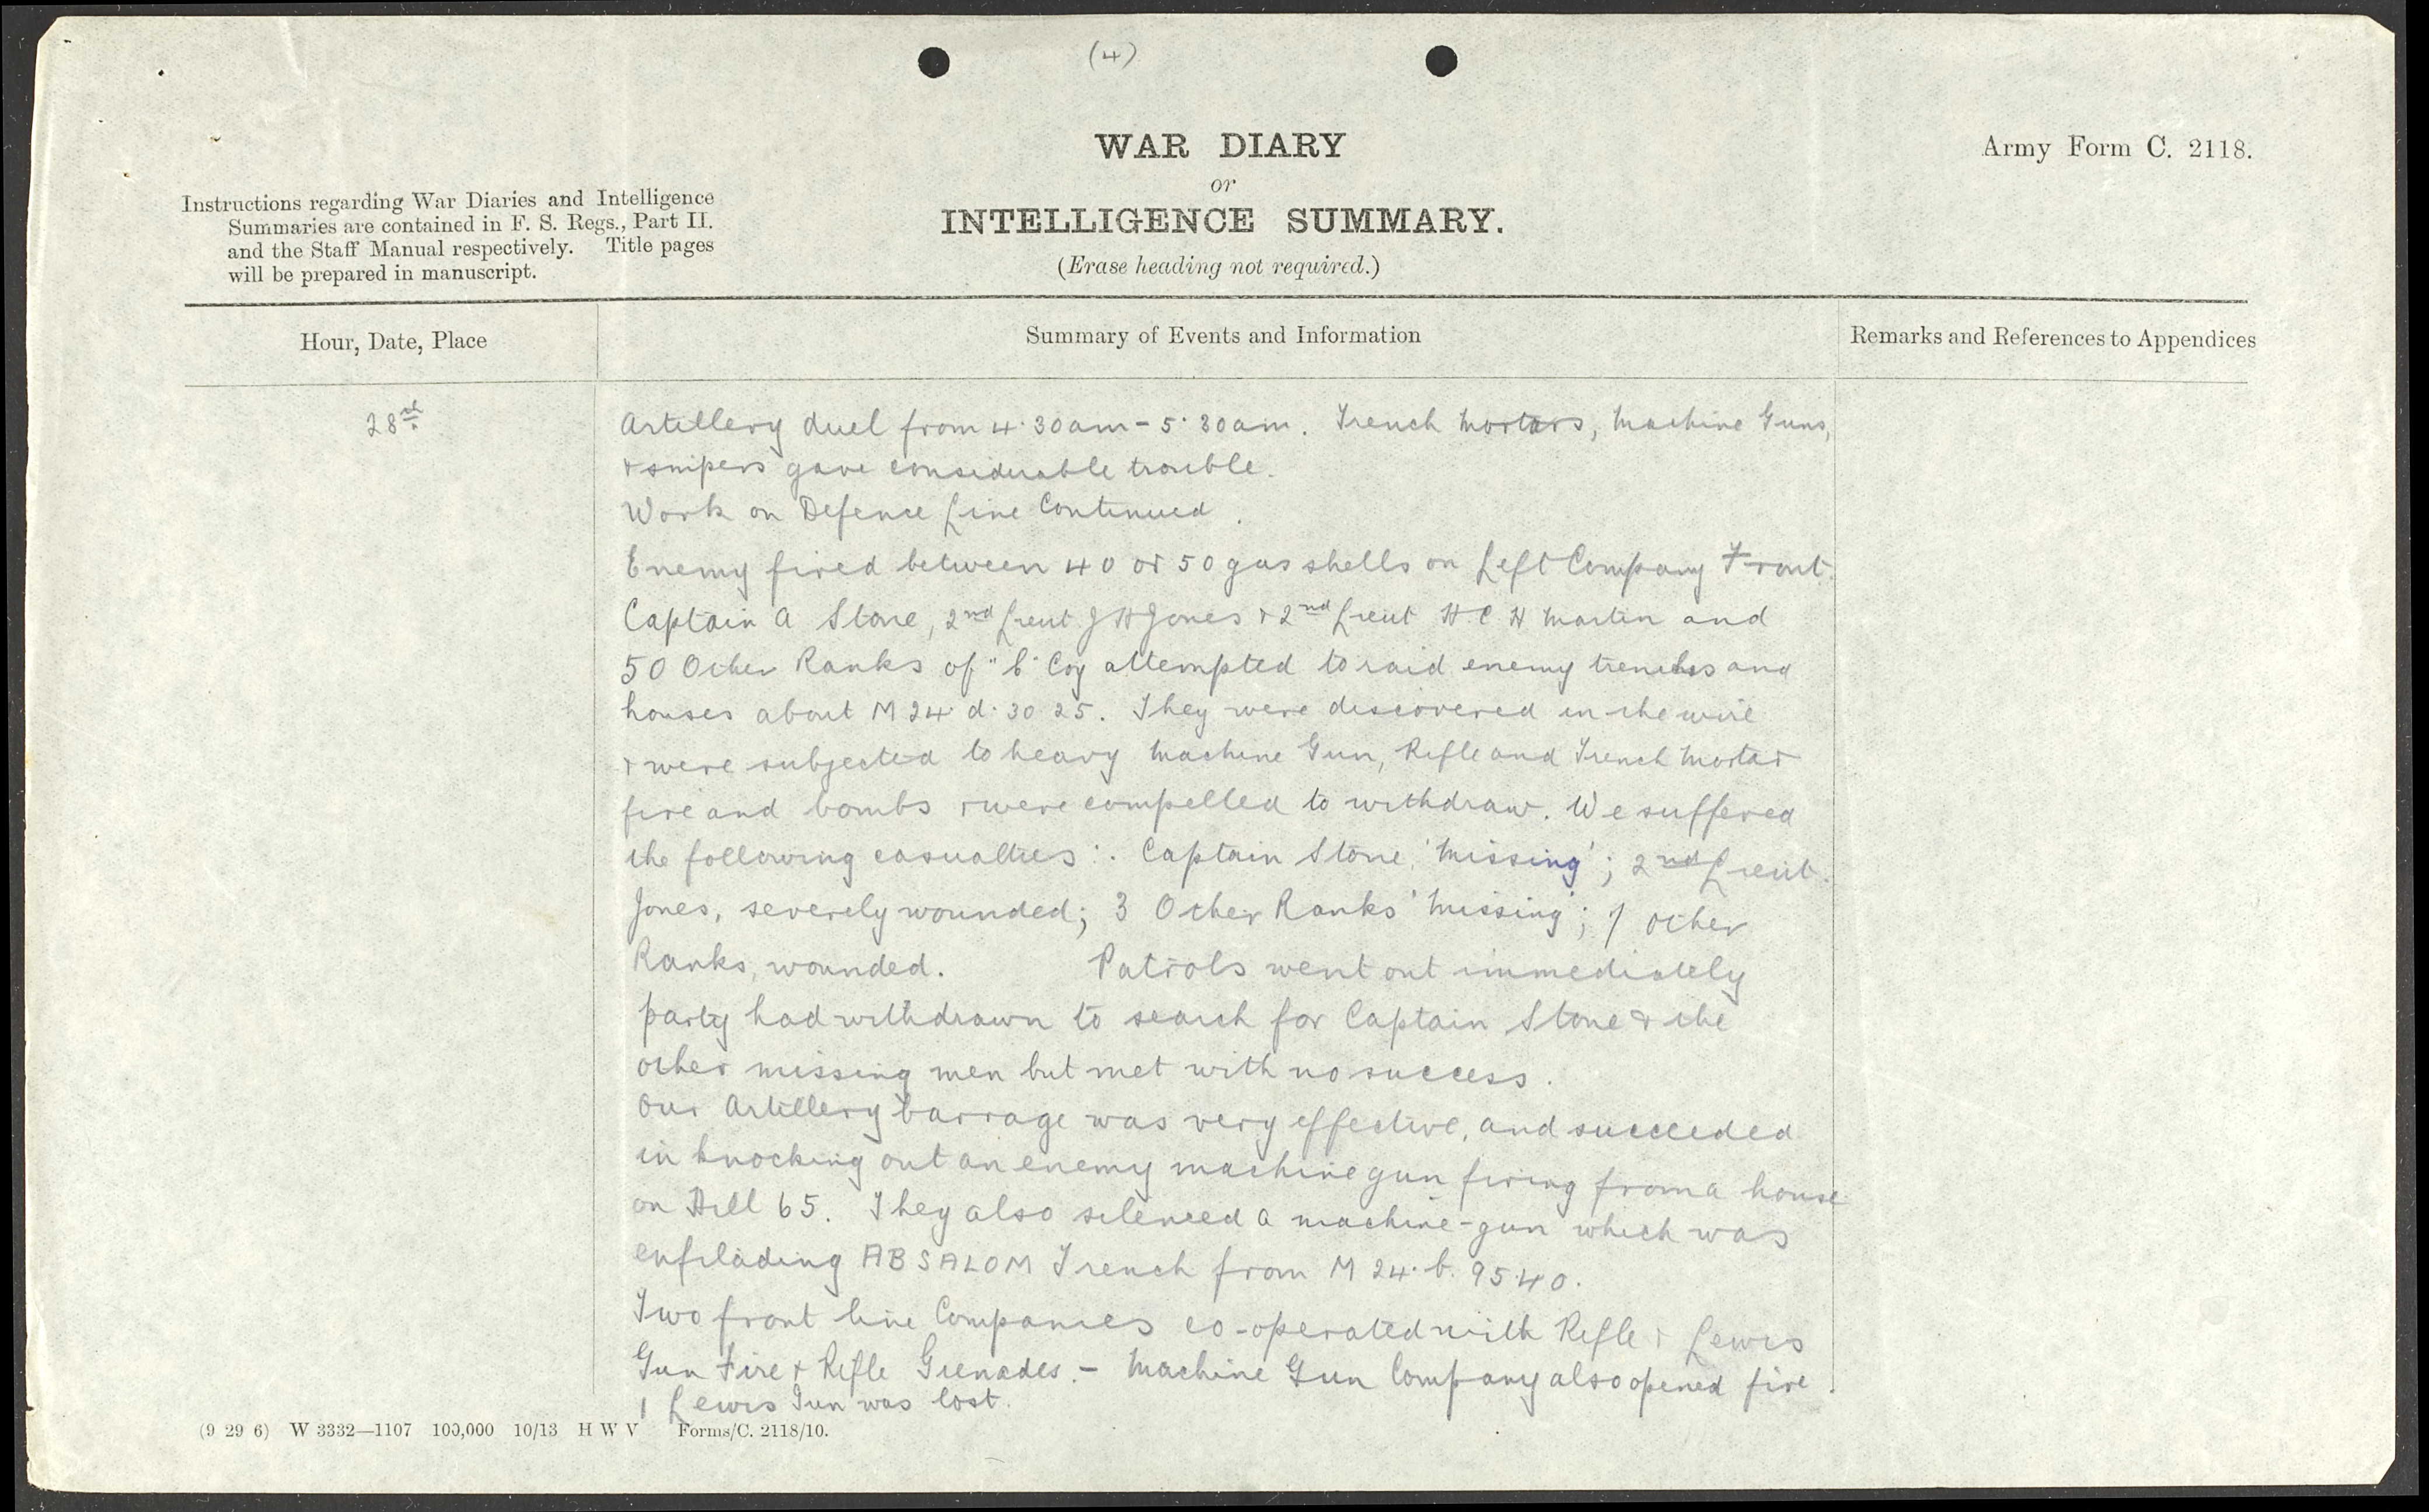 (4)
WAR DIARY
or
INTELLIGENCE SUMMARY.
(Erase heading not required.)
Army Form C. 2118.
Instructions regarding War Diaries and Intelligence
Summaries are contained in F. S. Regs., Part II.
and the Staff Manual respectively. Title pages
will be prepared in manuscript.
Hour, Date, Place
Summary of Events and Information
Remarks and References to Appendices
28th
Artillery duel from 4.30am - 5.30am. Trench Mortars, Machine Guns,
& snipers gave considerable trouble.
Work on Defence Line Continued.
Enemy fired between 40 or 50 gas shells on Left Company Front.
Captain A Stone, 2nd Lieut J H Jones & 2nd Lieut H C H Martin and
50 Other Ranks of Coy attempted to raid enemy trenches and
houses about M 24 d. 30 25. They were discovered in the wire
& were subjected to heavy Machine Gun, Rifle and Trench Mortar
fire and bombs & were compelled to withdraw. We suffered
the following casualties:. Captain Stone, 'Missing'; 2nd Lieut.
Jones, severely wounded; 3 Other Ranks 'Missing'; Other
Ranks, wounded. Patrols went out immediately
party had withdrawn to search for Captain Stone & the
other missing men but met with no success.
Our Artillery barrage was very effective, and succeeded
in knocking out an enemy machine gun firing from a house
on Hill 65. They also silenced a machine-gun which was
enfilading ABSALOM Trench from M 24. b. 95.40.
Two front line Companies co-operated with Rifle & Lewis
Gun Fire & Rifle Grenades. - Machine Gun Company also opened fire.
1 Lewis Gun was lost.
(9 29 6) W 3332—1107 100,000 10/13 H W V Forms/C. 2118/10.